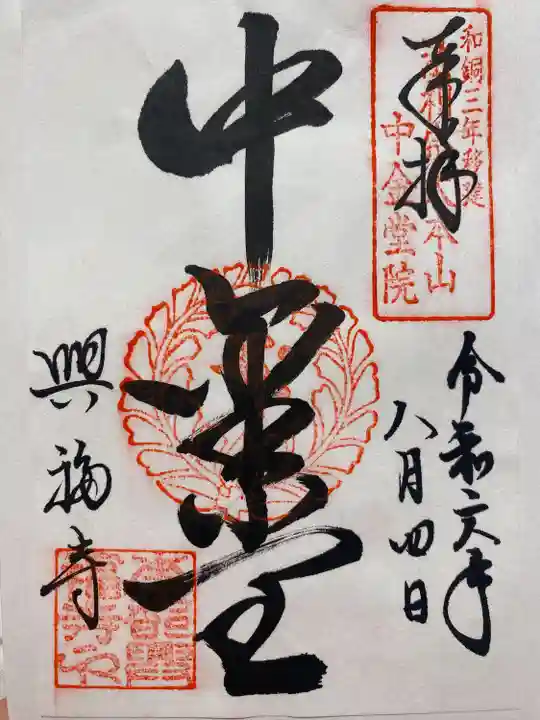 奉拝
和銅三年移建
法相宗大本山
中金堂院
令和六年
八月四日
中金堂
興福寺